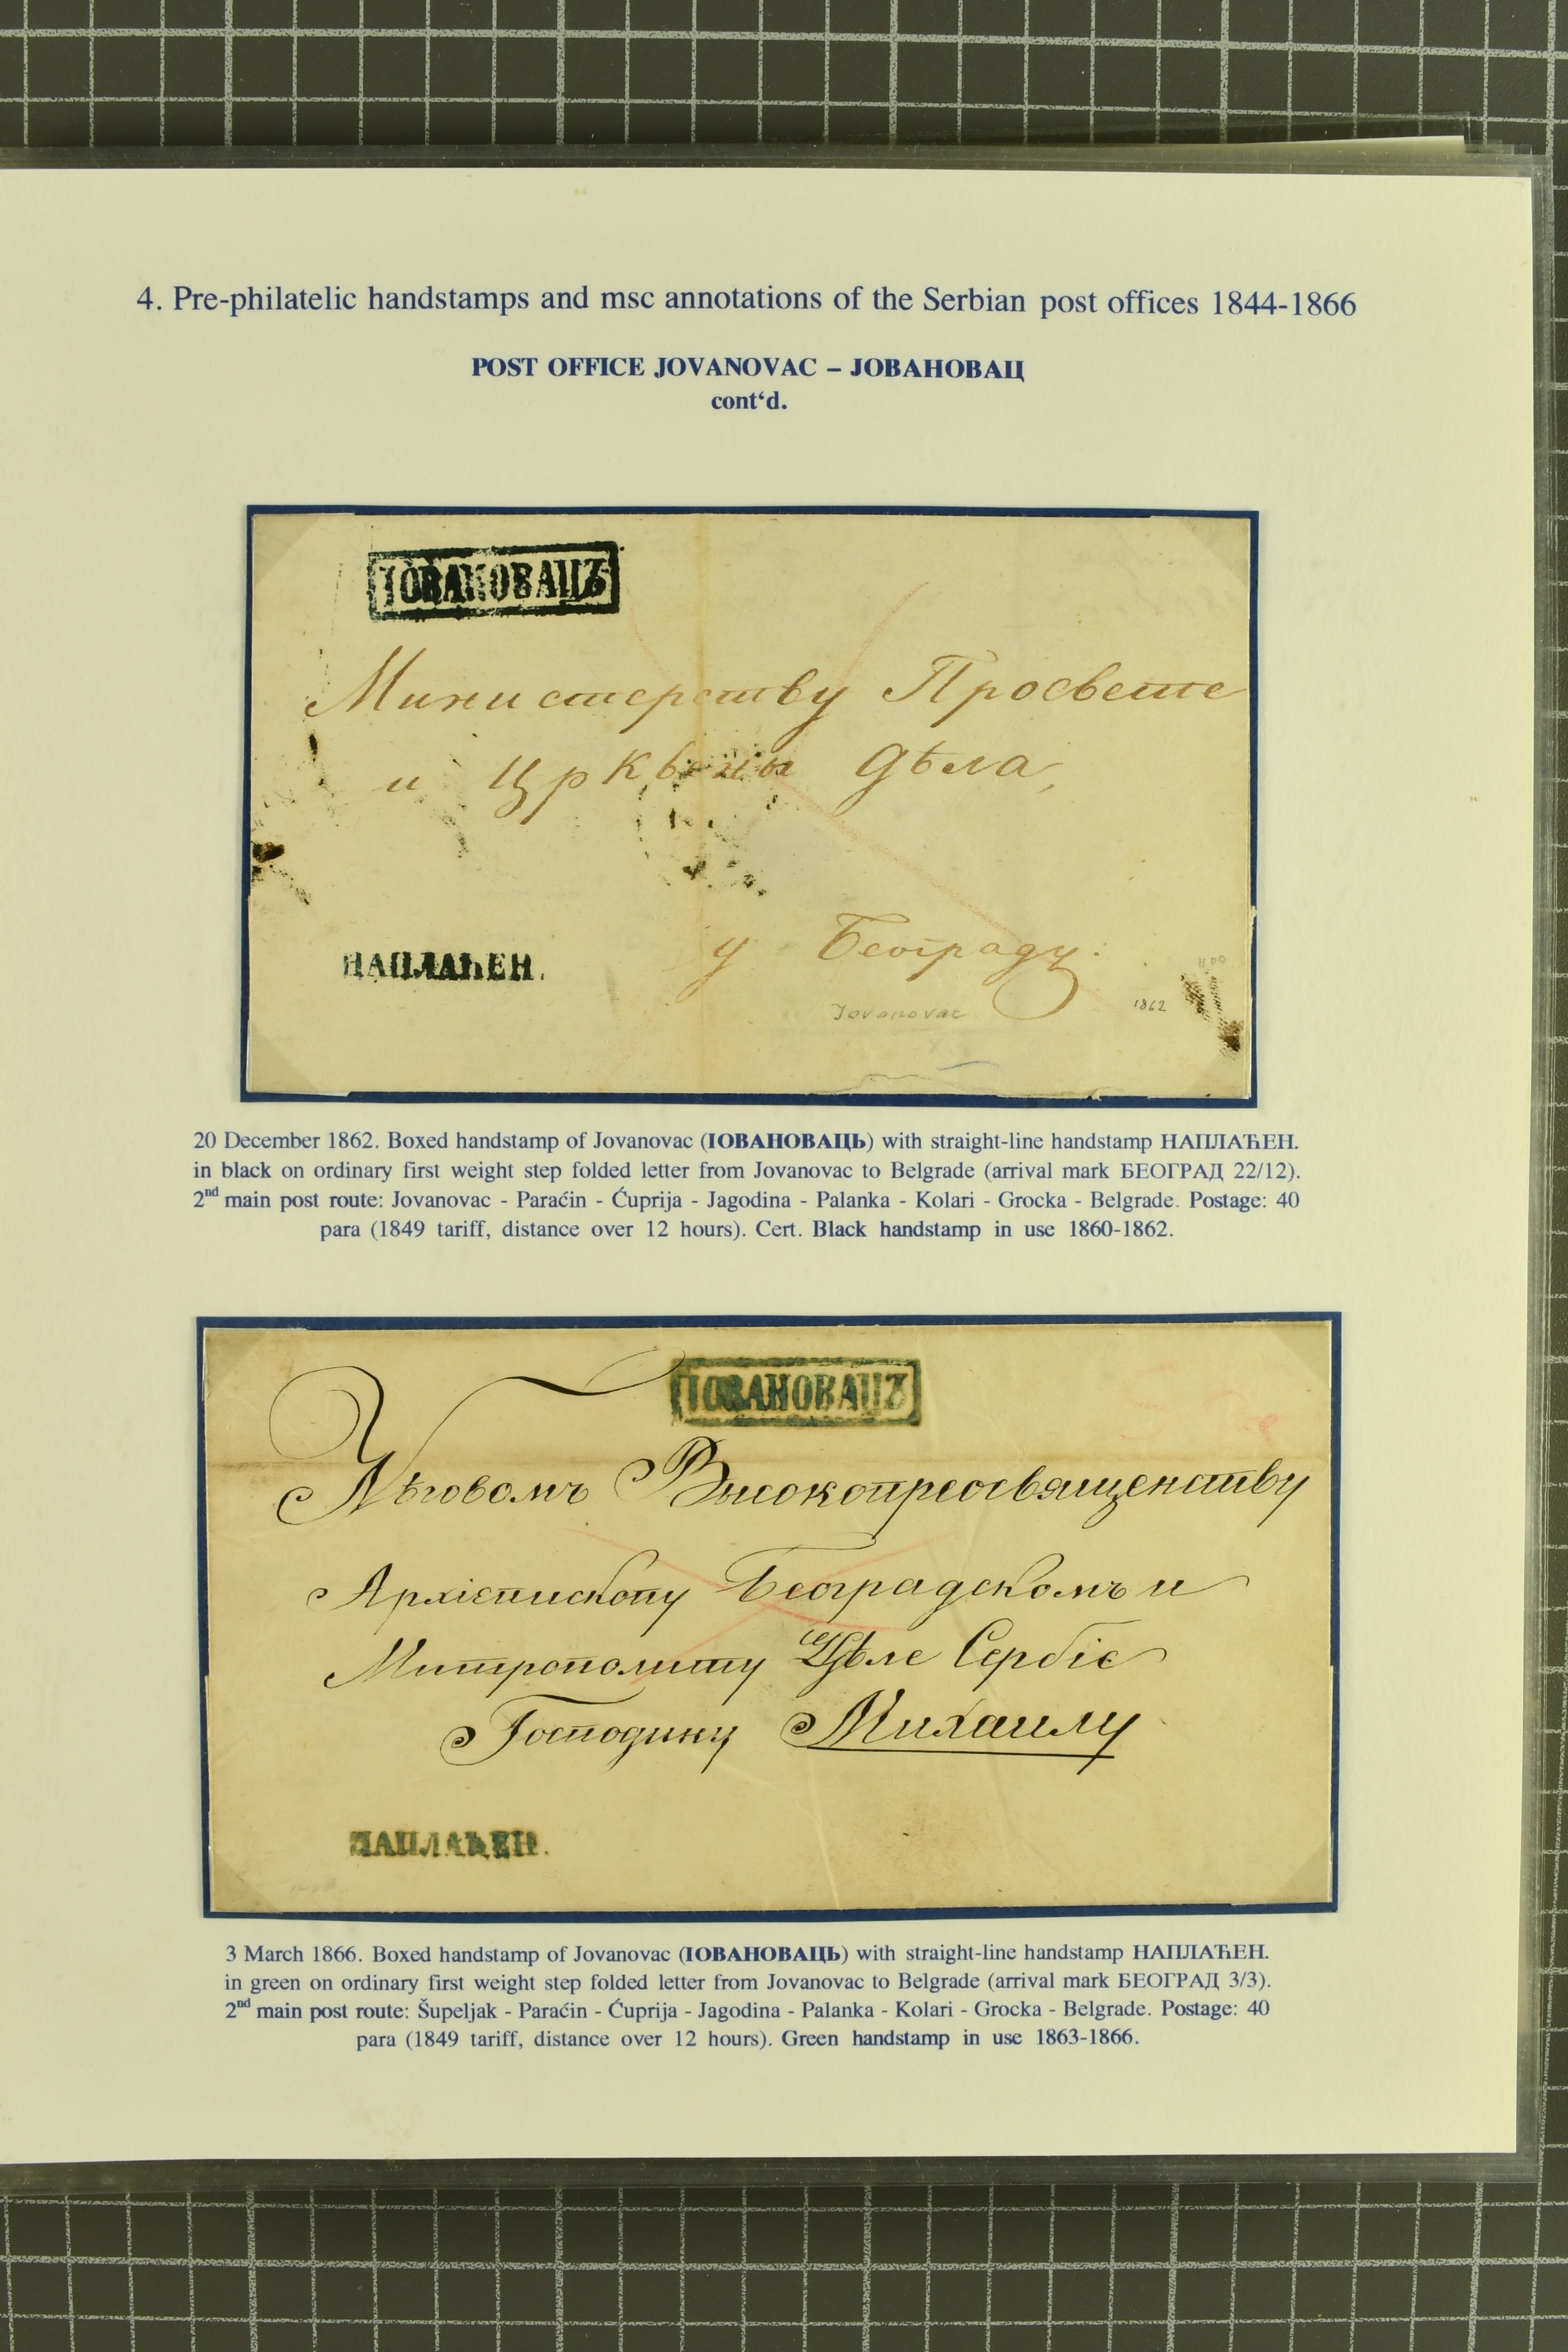 4. Pre-philatelic handstamps and msc annotations of the Serbian post offices 1844-1866
POST OFFICE JOVANOVAC – ЈОВАНОВАЦ
cont‘d.
ІОВАНОВАЦЪ
Министерству Просвете
и Црквены дѣла,
НАПЛАЋЕН.
у Београду.
Jovanovac
1862
20 December 1862. Boxed handstamp of Jovanovac (ІОВАНОВАЦЬ) with straight-line handstamp НАПЛАЋЕН.
in black on ordinary first weight step folded letter from Jovanovac to Belgrade (arrival mark БЕОГРАД 22/12).
2nd main post route: Jovanovac - Paraćin - Ćuprija - Jagodina - Palanka - Kolari - Grocka - Belgrade. Postage: 40
para (1849 tariff, distance over 12 hours). Cert. Black handstamp in use 1860-1862.
ІОВАНОВАЦЪ
Нѣговомъ Высокопреосвященству
Архіепископу Београдскомъ и
Митрополиту Цѣле Сербіе
Господину Михаилу
НАПЛАЋЕН.
3 March 1866. Boxed handstamp of Jovanovac (ІОВАНОВАЦЬ) with straight-line handstamp НАПЛАЋЕН.
in green on ordinary first weight step folded letter from Jovanovac to Belgrade (arrival mark БЕОГРАД 3/3).
2nd main post route: Šupeljak - Paraćin - Ćuprija - Jagodina - Palanka - Kolari - Grocka - Belgrade. Postage: 40
para (1849 tariff, distance over 12 hours). Green handstamp in use 1863-1866.